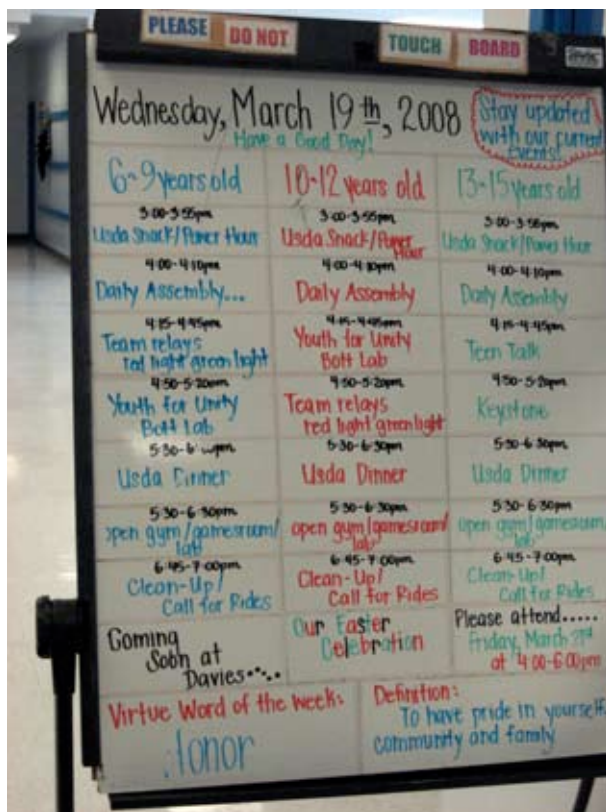 PLEASE DO NOT TOUCH BOARD
Wednesday, March 19th, 2008
Have a Good Day!
Stay updated
with our current
events!
6-9 years old
10-12 years old
13-15 years old
3:00-3:55pm
Usda Snack/Power Hour
3:00-3:55pm
Usda Snack/Power
Hour
3:00-3:55pm
Usda Snack/Power Hour
4:00-4:10pm
Daily Assembly...
4:00-4:10pm
Daily Assembly
4:00-4:10pm
Daily Assembly
4:15-4:45pm
Team relays
red light green light
4:15-4:45pm
Youth for Unity
Bott Lab
4:15-4:45pm
Teen Talk
4:50-5:20pm
Youth for Unity
Bott Lab
4:50-5:20pm
Team relays
red light green light
4:50-5:20pm
Keystone
5:30-6:
Usda Dinner
5:30-6:30pm
Usda Dinner
5:30-6:30pm
Usda Dinner
5:30-6:30pm
open gym/gamesroom/
lab
5:30-6:30pm
open gym/gamesroom/
lab
5:30-6:30pm
open gym/gamesroom/
lab
6:45-7:00pm
Clean-Up/
Call for Rides
6:45-7:00pm
Clean-Up/
Call for Rides
6:45-7:00pm
Clean-Up/
Call for Rides
Coming
Soon at
Davies.....
Our Easter
Celebration
Please attend.....
Friday, March 21st
at 4:00-6:00pm
Virtue Word of the week:
Honor
Definition:
To have pride in yourself,
community and family